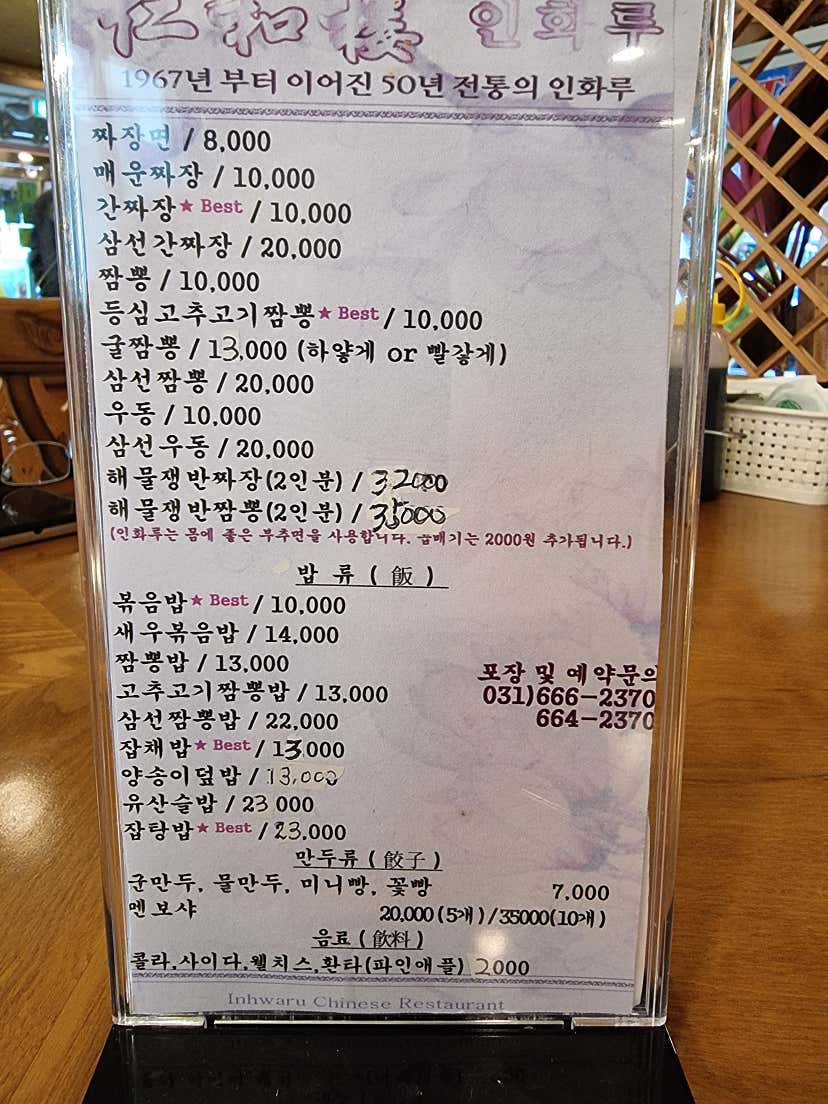 仁和樓 인화루
1967년 부터 이어진 50년 전통의 인화루
짜장면 / 8,000
매운짜장 / 10,000
간짜장★ Best / 10,000
삼선간짜장 / 20,000
짬뽕 / 10,000
등심고추고기짬뽕★ Best / 10,000
굴짬뽕 / 13,000 (하얗게 or 빨갛게)
삼선짬뽕 / 20,000
우동 / 10,000
삼선우동 / 20,000
해물쟁반짜장(2인분) / 32000
해물쟁반짬뽕(2인분) / 35000
(인화루는 몸에 좋은 부추면을 사용합니다. 곱배기는 2000원 추가됩니다.)
밥 류 ( 飯 )
볶음밥★ Best / 10,000
새우볶음밥 / 14,000
짬뽕밥 / 13,000
고추고기짬뽕밥 / 13,000
삼선짬뽕밥 / 22,000
잡채밥★ Best / 13000
양송이덮밥 / 13,000
유산슬밥 / 23 000
잡탕밥★ Best / 23.000
포장 및 예약문의
031)666-2370
664-2370
만두류 ( 餃子 )
군만두, 물만두, 미니빵, 꽃빵 7,000
멘보샤 20,000 (5개) / 35000(10개)
음료 ( 飮料 )
콜라,사이다,웰치스,환타(파인애플) 2000
Inhwaru Chinese Restaurant